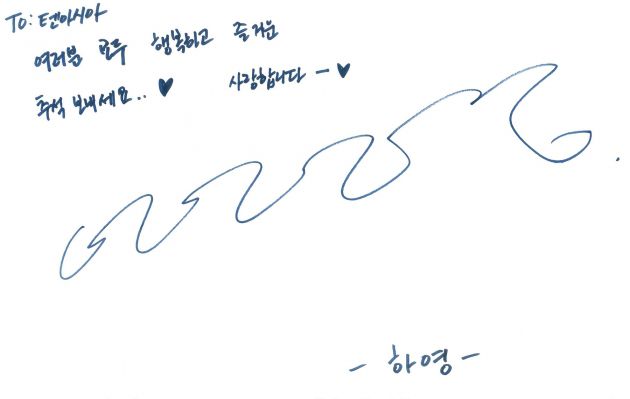 To: 텐아시아
여러분 모두 행복하고 즐거운
추석 보내세요.. ♥ 사랑합니다 ー ♥
- 하영 -